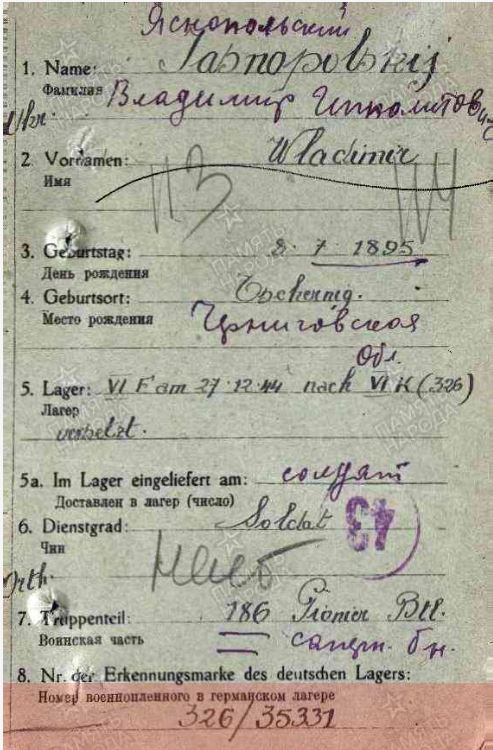 Яснопольский
1. Name: Jasnopolskij
Фамилия Владимир Ипполитович
Ukr.
2. Vornamen: Wladimir
Имя
3. Geburtstag: 8. 7. 1895
День рождения
4. Geburtsort: Tschernig.
Место рождения Черниговская
Обл.
5. Lager: VI F am 27.12.44 nach VI K (326)
Лагер
versetzt.
5a. Im Lager eingeliefert am: солдат
Доставлен в лагер (число)
6. Dienstgrad: Soldat
Чин
43
Orth.
7. Truppenteil: 186 Pionier Btl.
Воинская часть саперн. бн.
8. Nr. der Erkennungsmarke des deutschen Lagers:
Номер военнопленного в германском лагере
326/35331